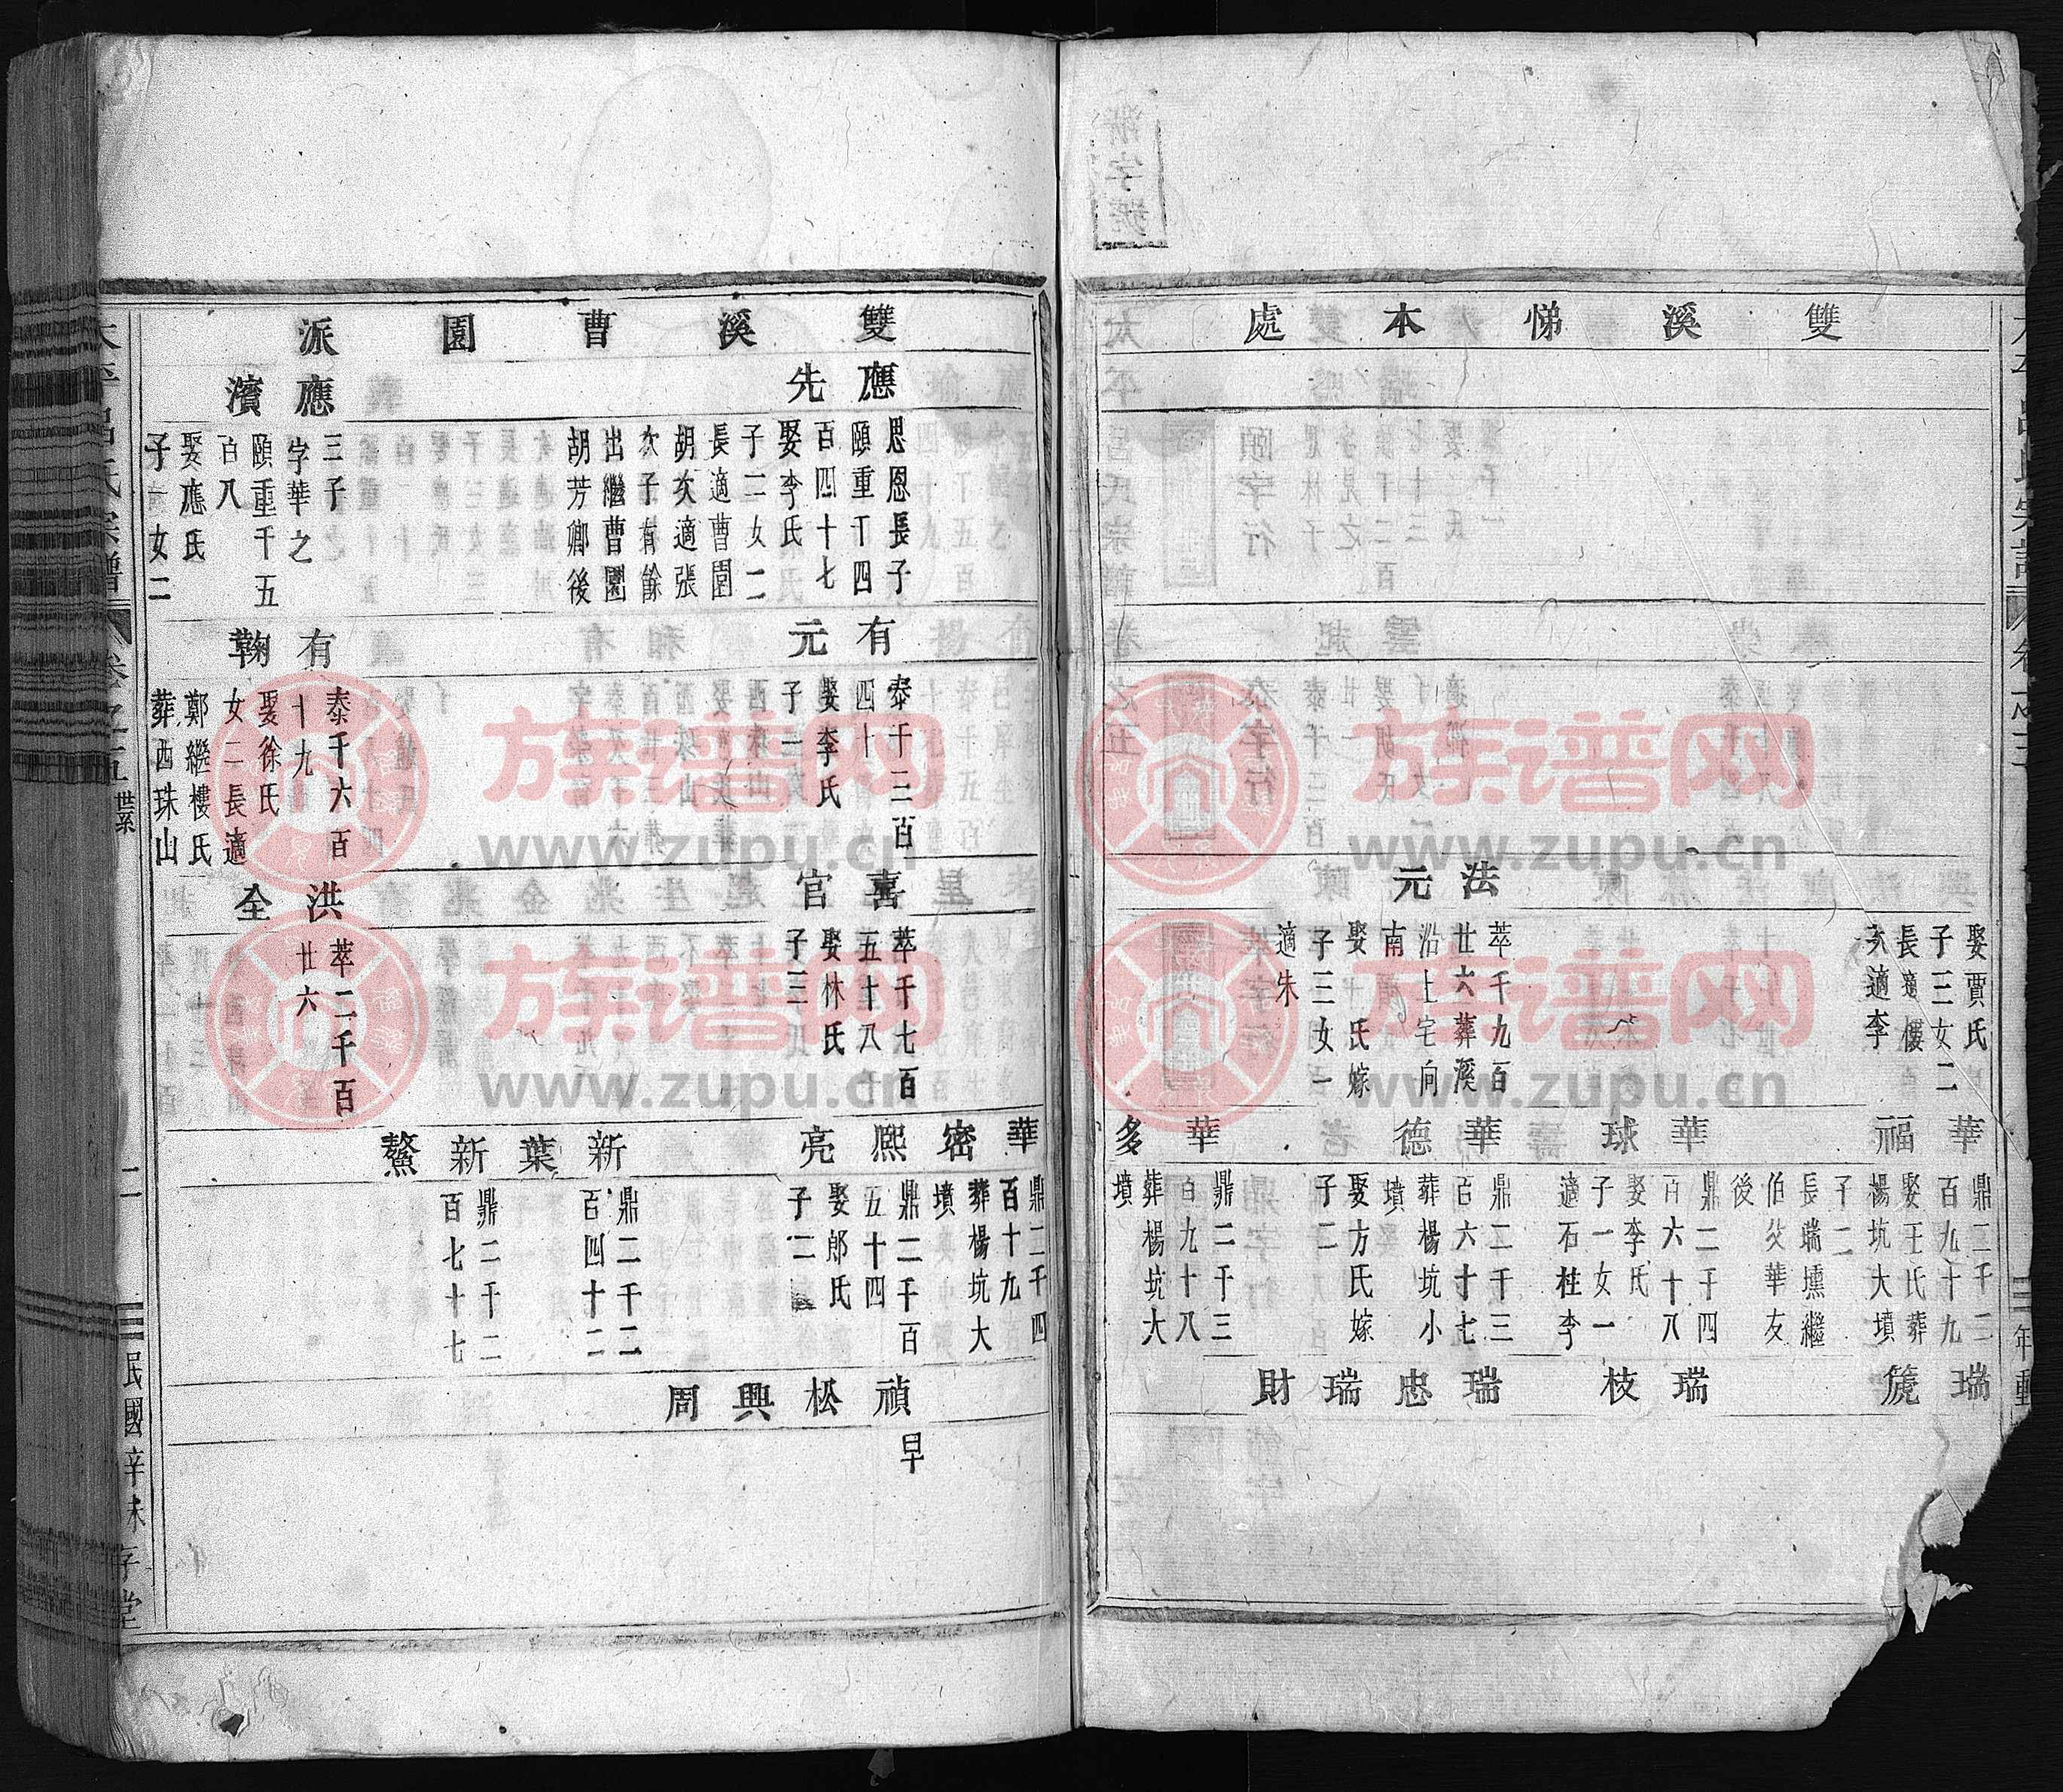 雙溪悌本處
娶賈氏
子三女二
長適樓
次適李
法元
萃千九百
廿六葬溪
沿上宅向
南
娶 氏嫁
子三女一
適朱
華福
鼎二千二
百九十九
娶王氏葬
楊坑大墳
子二
長瑞壎繼
伯父華友
後
華球
鼎二千四
百六十八
娶李氏
子一女一
適石柱李
華德
鼎二千三
百六十七
葬楊坑小
墳
娶方氏嫁
子二
華多
鼎二千三
百九十八
葬楊坑大
墳
瑞箎
瑞枝
瑞忠
瑞財
雙溪曹園派
應先
思恩長子
頤重千四
百四十七
娶李氏
子二女二
長適曹園
胡次適張
次子有餘
出繼曹園
胡芳卿後
應濱
三子
字華之
頤重千五
百八
娶應氏
子一女二
有元
泰千三百
四十
娶李氏
子一
有鞠
泰千六百
十九
娶徐氏
女二長適
鄭繼樓氏
葬西珠山
喜官
萃千七百
五十八
娶林氏
子三
洪全
萃二千百
廿六
華密
鼎二千四
百十九
葬楊坑大
墳
熙亮
鼎二千百
五十四
娶郎氏
子二
新葉
鼎二千二
百四十二
新鰲
鼎二千二
百七十七
禎松
早
興周
卷之五
世系
二
民國辛未
存堂
族谱网
www.zupu.cn
族谱网
www.zupu.cn
族谱网
www.zupu.cn
族谱网
www.zupu.cn